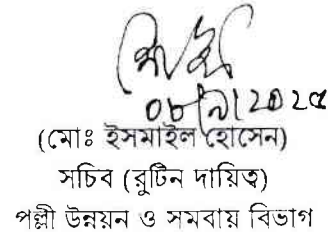 (মোঃ ইসমাইল হোসেন)
সচিব (রুটিন দায়িত্ব)
পল্লী উন্নয়ন ও সমবায় বিভাগ